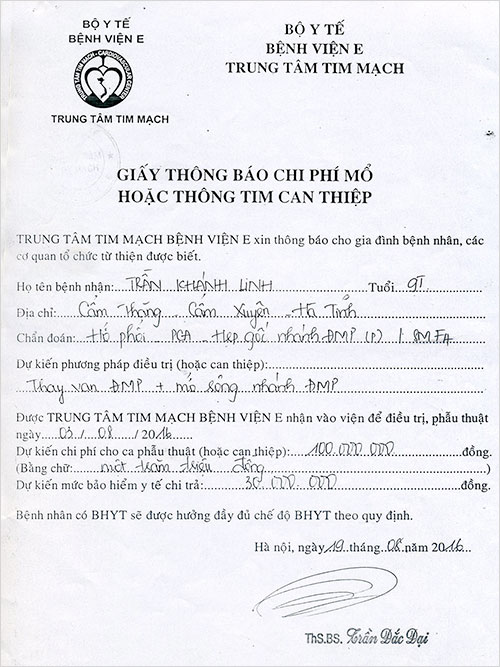 BỘ Y TẾ
BỆNH VIỆN E
TRUNG TÂM TIM MẠCH - CARDIOVASCULAR CENTER
TRUNG TÂM TIM MẠCH
BỘ Y TẾ
BỆNH VIỆN E
TRUNG TÂM TIM MẠCH
GIẤY THÔNG BÁO CHI PHÍ MỔ
HOẶC THÔNG TIM CAN THIỆP
TRUNG TÂM TIM MẠCH BỆNH VIỆN E xin thông báo cho gia đình bệnh nhân, các
cơ quan tổ chức từ thiện được biết.
Họ tên bệnh nhân: TRẦN KHÁNH LINH Tuổi 9T
Địa chỉ: Cẩm Thăng - Cẩm Xuyên - Hà Tĩnh
Chẩn đoán: Hở phổi - PCA - Hẹp gốc nhánh ĐMP (P) /
Dự kiến phương pháp điều trị (hoặc can thiệp):
Thay van ĐMP + mở rộng nhánh ĐMP
Được TRUNG TÂM TIM MẠCH BỆNH VIỆN E nhận vào viện để điều trị, phẫu thuật
ngày 03 / 08 / 2016
Dự kiến chi phí cho ca phẫu thuật (hoặc can thiệp): 100.000.000 đồng.
(Bằng chữ: một trăm triệu đồng
Dự kiến mức bảo hiểm y tế chi trả: 30 000 000 đồng.
Bệnh nhân có BHYT sẽ được hưởng đầy đủ chế độ BHYT theo quy định.
Hà nội, ngày 19 tháng 08 năm 2016
ThS.BS. Trần Đắc Đại